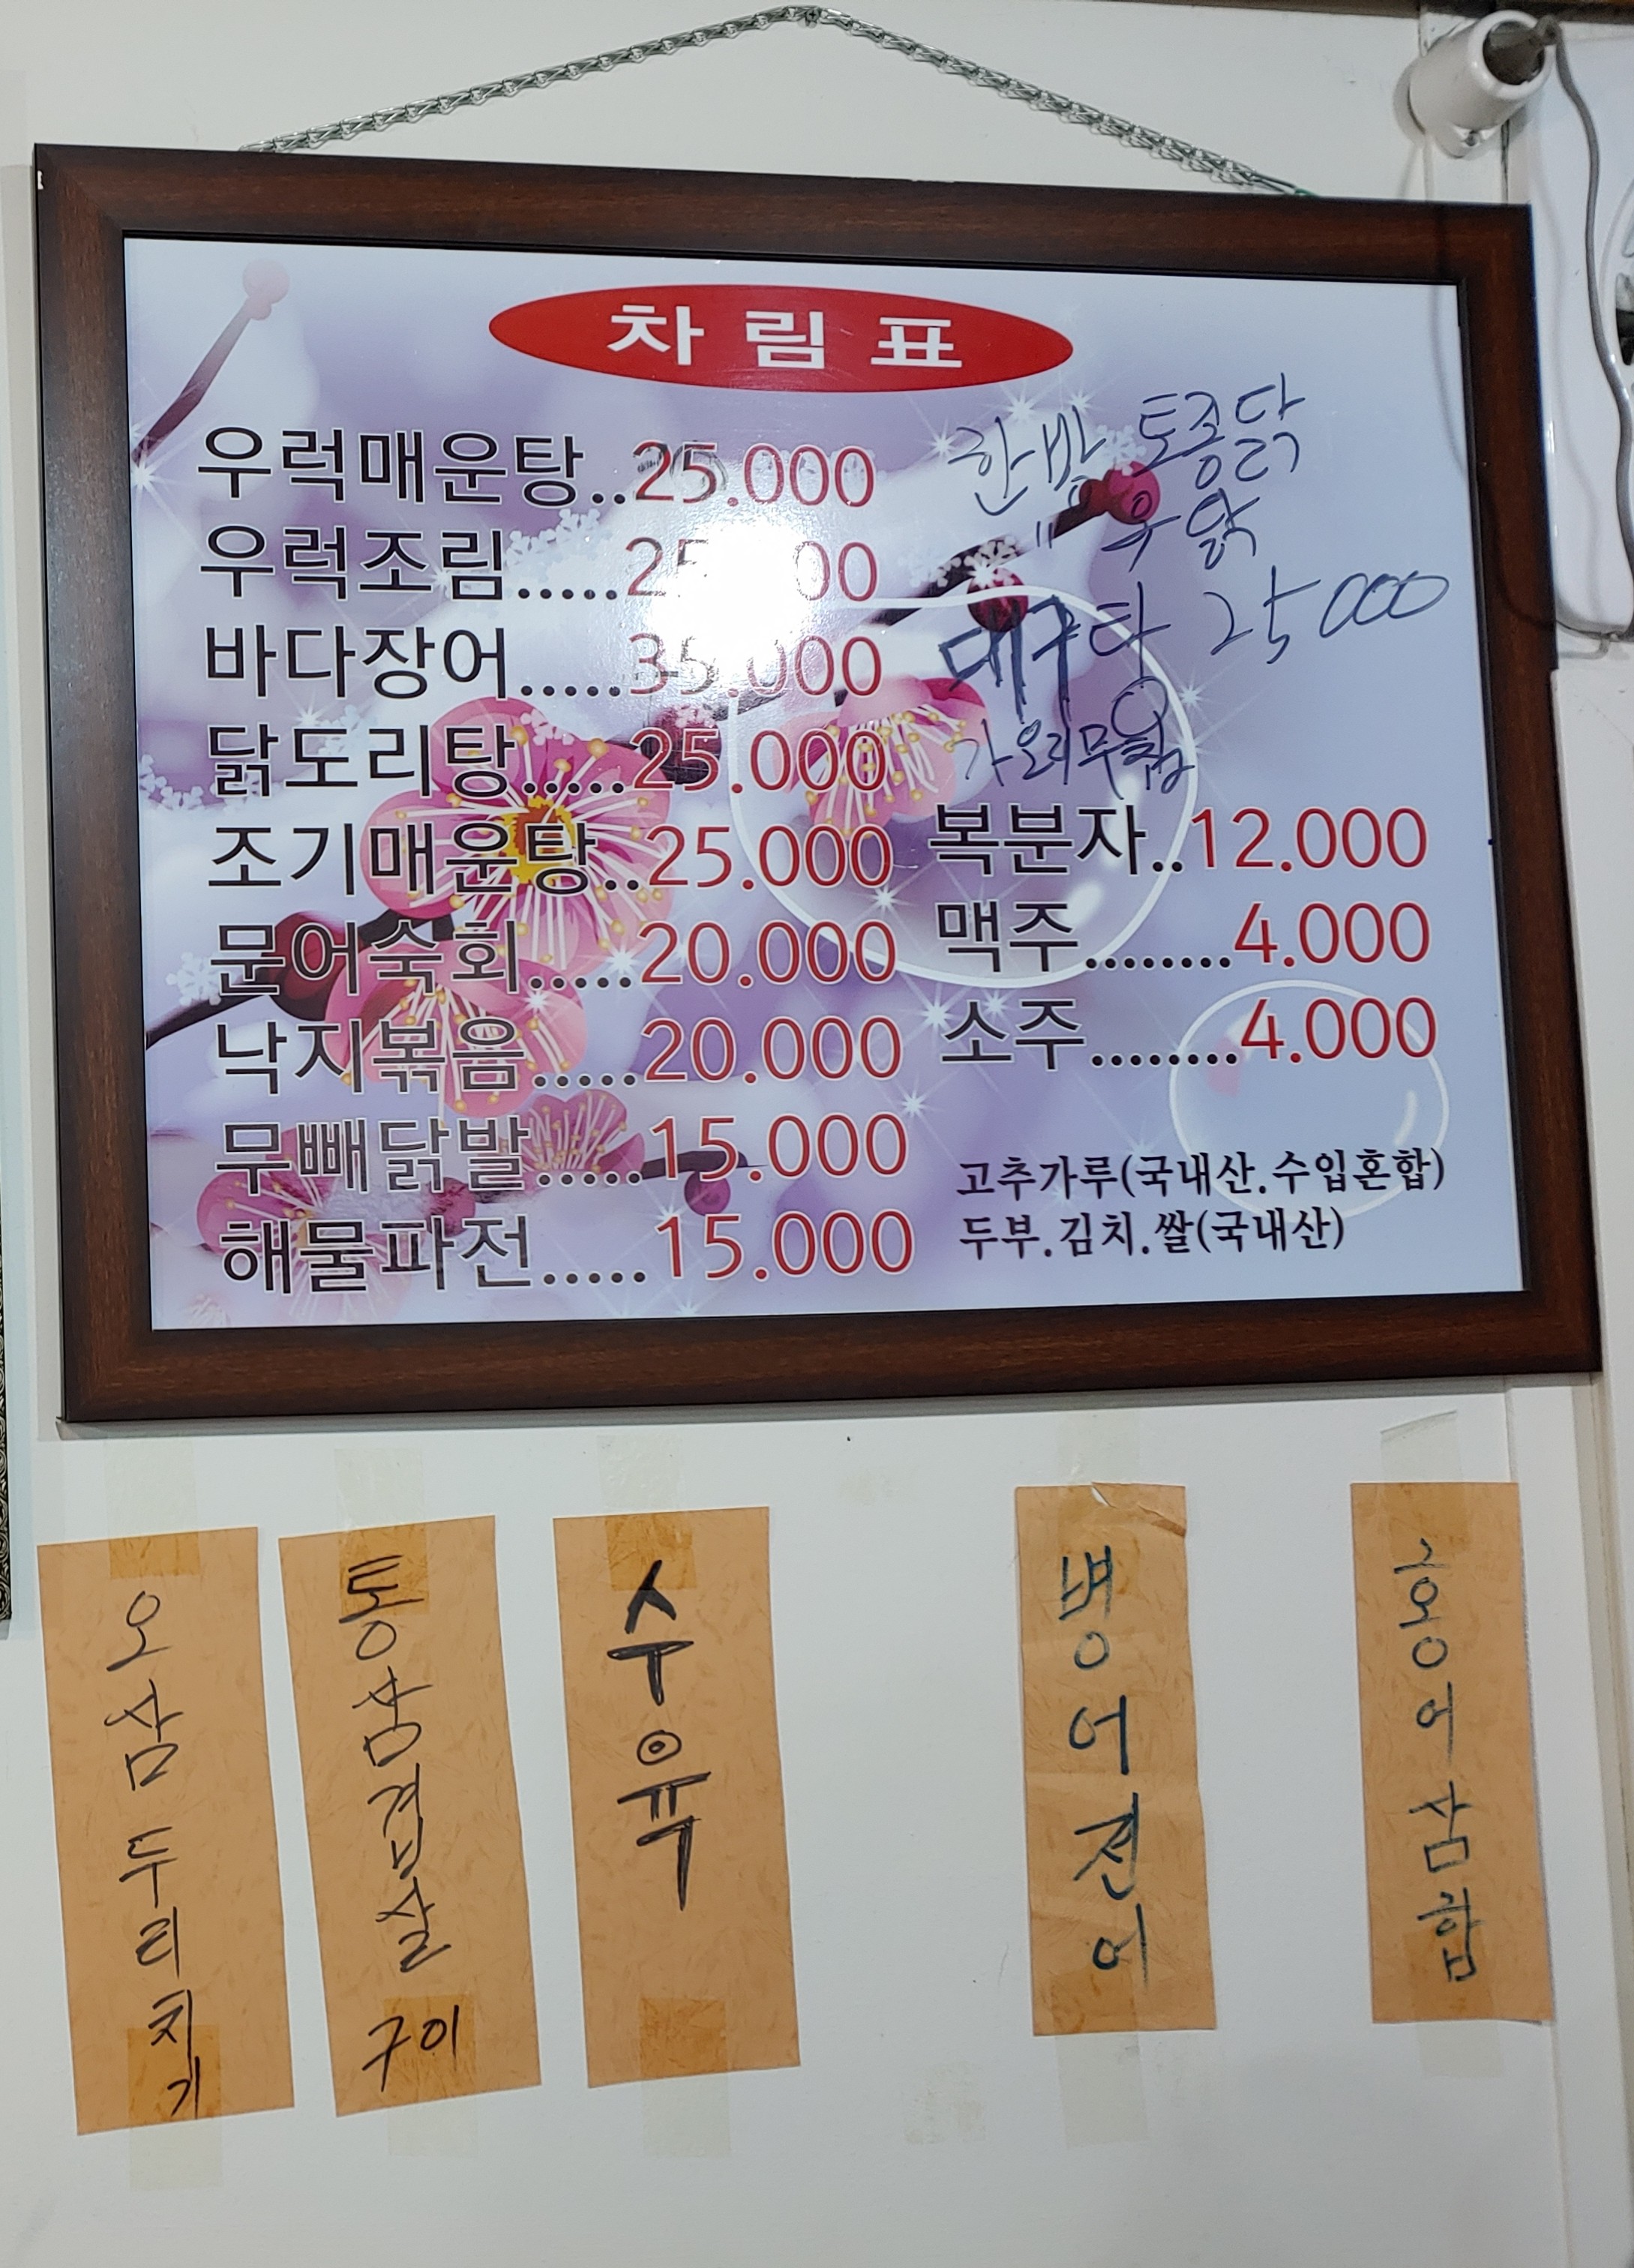 차림표
우럭매운탕..25.000
우럭조림.....25 00
바다장어.....35.000
닭도리탕.....25.000
조기매운탕..25.000
문어숙회.....20.000
낙지볶음.....20.000
무빼닭발.....15.000
해물파전.....15.000
한방 토종닭
" 옻닭
대구탕 25000
가오리무침
복분자..12.000
맥주........4.000
소주........4.000
고추가루(국내산.수입혼합)
두부.김치.쌀(국내산)
오삼두리치기
통삼겹살 구이
수육
병어전어
홍어삼합